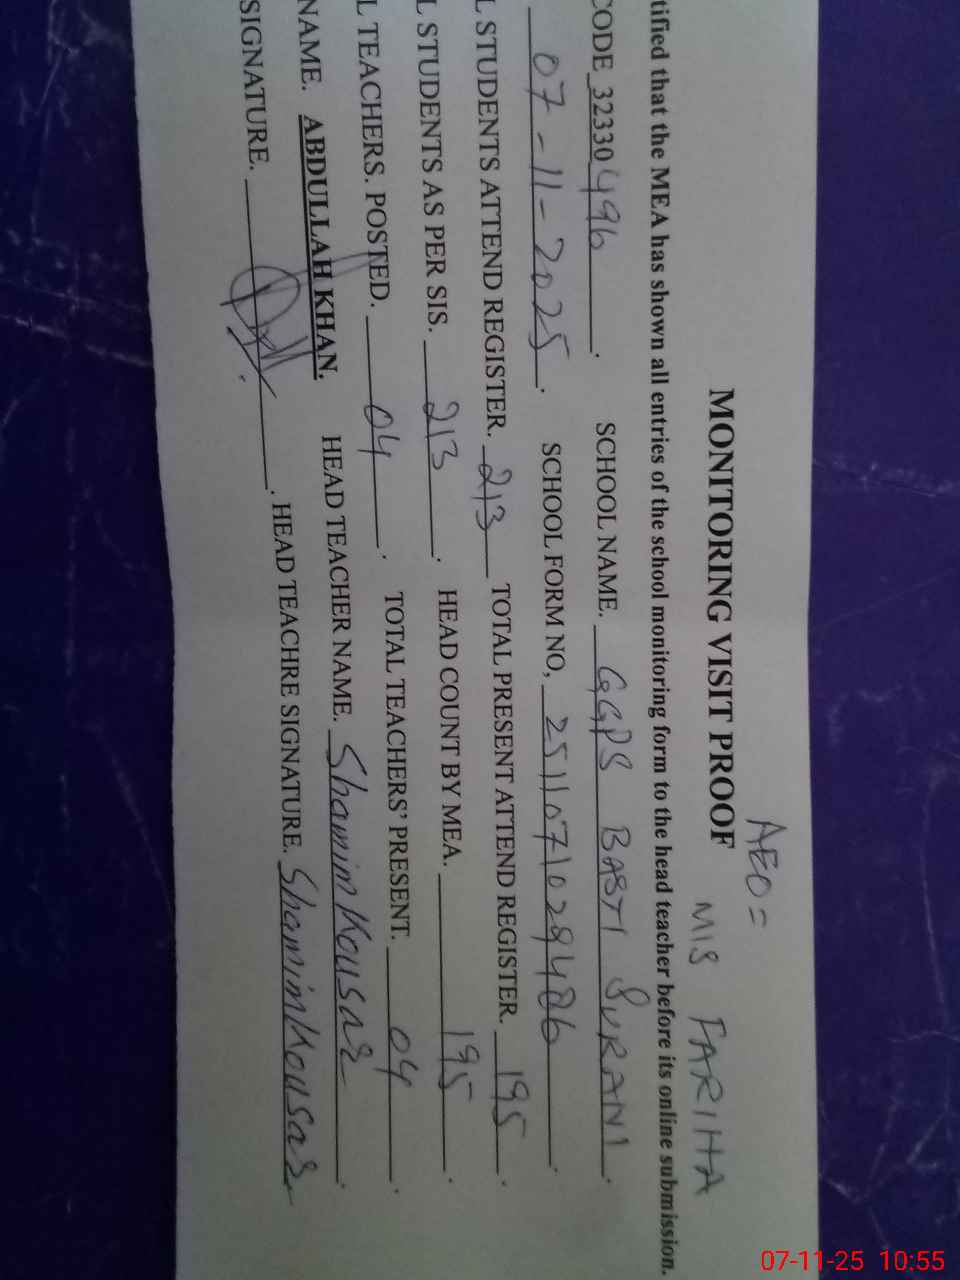 AEO =
MONITORING VISIT PROOF MIS FARIHA
tified that the MEA has shown all entries of the school monitoring form to the head teacher before its online submission.
CODE 32330496. SCHOOL NAME. GGPS BASTI SURANI.
07-11-2025. SCHOOL FORM NO, 
L STUDENTS ATTEND REGISTER. 213 TOTAL PRESENT ATTEND REGISTER. 195.
L STUDENTS AS PER SIS. 213. HEAD COUNT BY MEA. 195.
L TEACHERS. POSTED. 04. TOTAL TEACHERS' PRESENT. 04.
NAME. ABDULLAH KHAN. HEAD TEACHER NAME. Shamim Kousar.
SIGNATURE. . HEAD TEACHRE SIGNATURE. Shamim Kousar
07-11-25 10:55